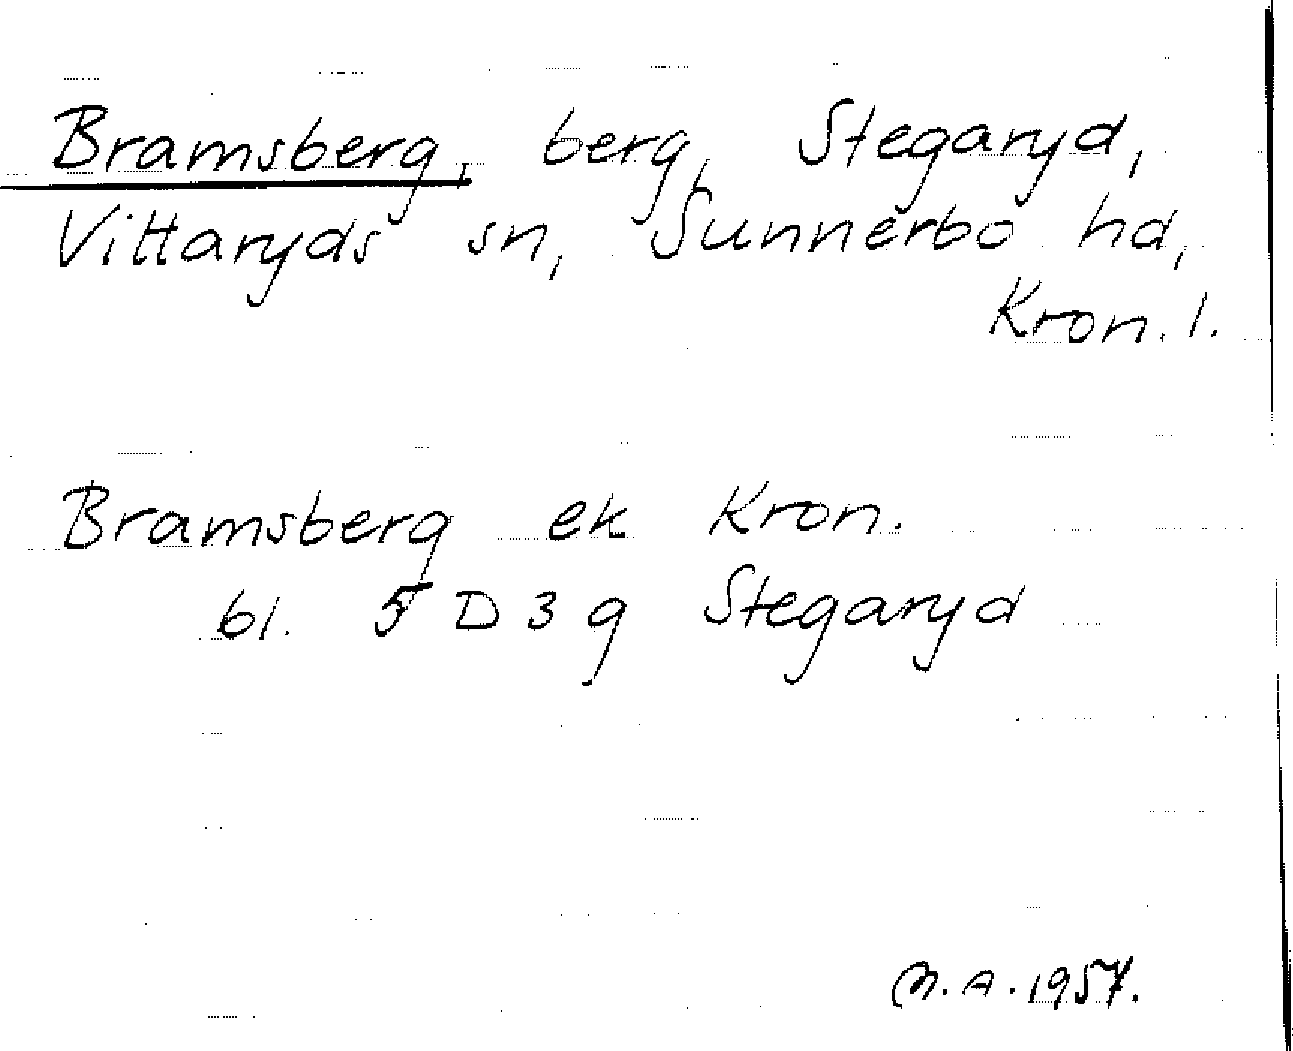 Bramsberg, berg, Stegaryd,
Vittaryds sn, Sunnerbo hd,
Kron. l.
Bramsberg ek Kron.
bl. 5 D 3 g Stegaryd
M. A. 1957.